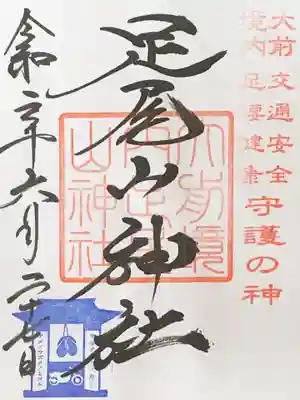 大前 交通安全
境内 足腰健康
守護の神
足尾山神社
大前境
内足尾
山神社
令和二年六月二十七日